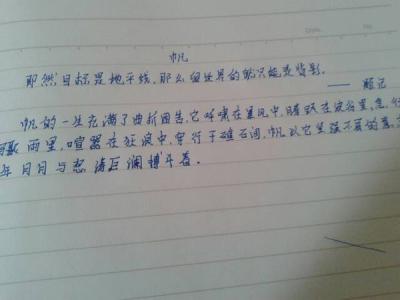 帆
即然目标是地平线,那么留给世界的就只能是背影。
—— 题记
帆的一生充满了曲折困苦,它呼啸在暴风中,腾跃在浪谷里,急行
雨里,喧嚣在狂浪中,穿行于礁石间,帆以它坚强不屈的意
年月月与怒涛巨澜搏斗着。